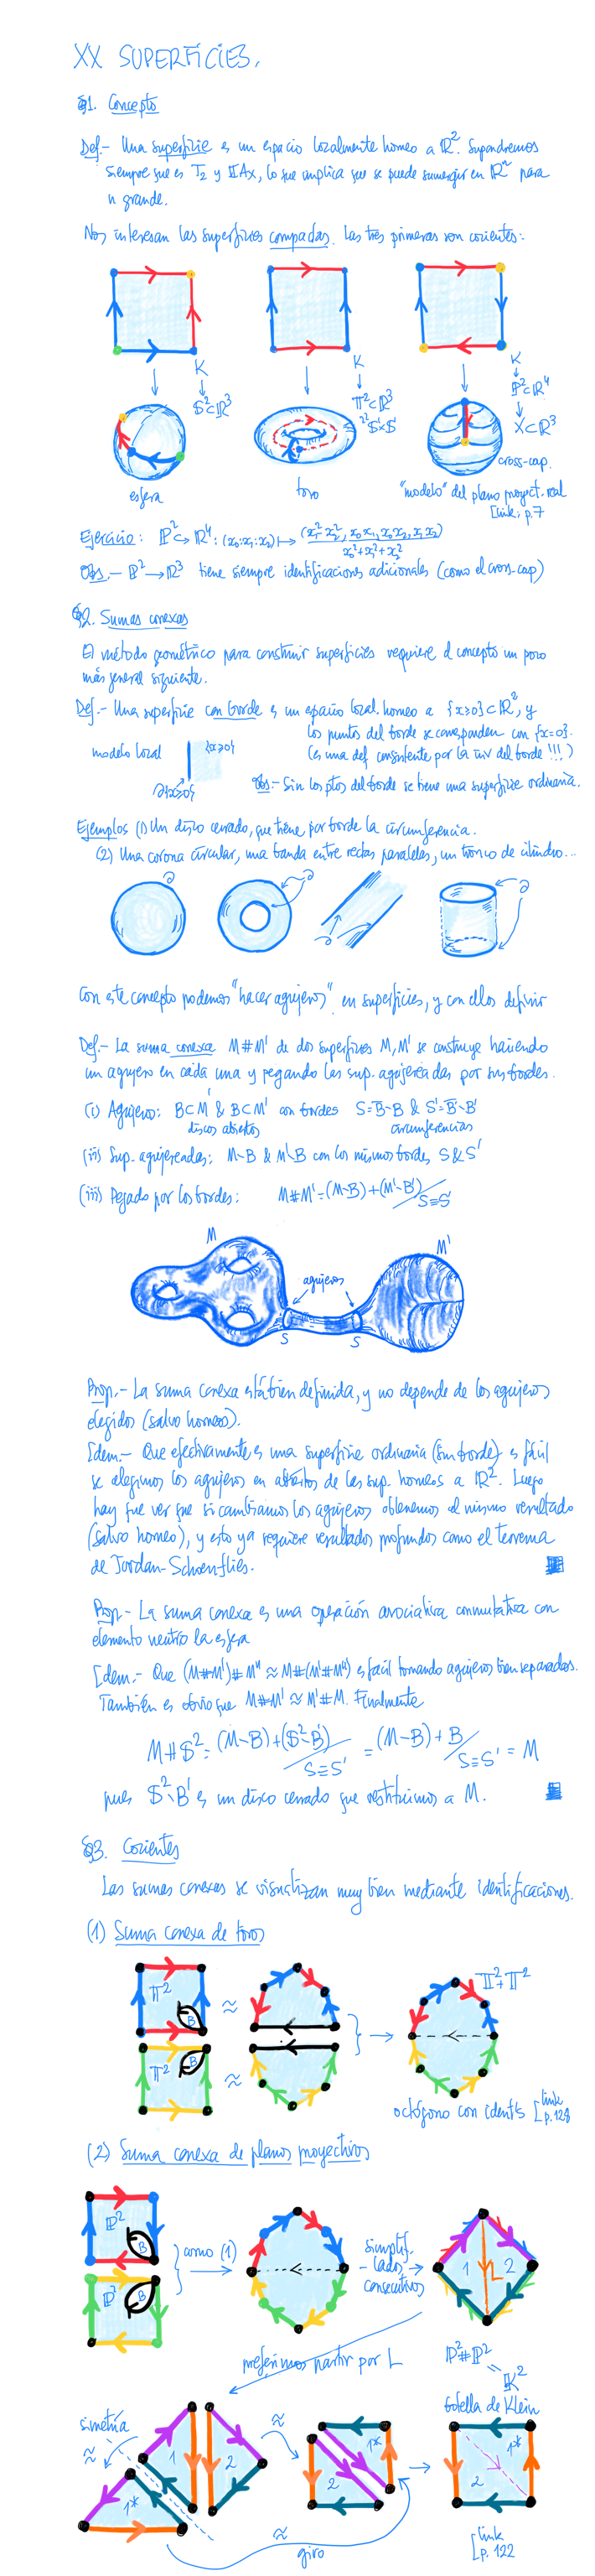 XX SUPERFICIES.
§1. Concepto
Def.- Una superficie es un espacio localmente homeo a ℝ². Supondremos
siempre que es T₂ y IIAx, lo que implica que se puede sumergir en ℝⁿ para
n grande.
Nos interesan las superficies compactas. Las tres primeras son cocientes:
K
K
K
𝕊²⊂ℝ³
𝕋²⊂ℝ³
𝕊¹×𝕊¹
ℙ²⊂ℝ⁴
X⊂ℝ³
cross-cap
esfera
toro
"modelo" del plano proyect. real
[link: p.7
Ejercicio: ℙ²↪ℝ⁴: (x₀:x₁:x₂)↦
x₀²+x₁²+x₂²
Obs.- ℙ²→ℝ³ tiene siempre identificaciones adicionales (como el cross-cap)
§2. Sumas conexas
El método geométrico para construir superficies requiere el concepto un poco
más general siguiente.
Def.- Una superficie con borde es un espacio local. homeo a {x≥0}⊂ℝ², y
los puntos del borde se corresponden con {x=0}.
(es una def consistente por la inv del borde !!!)
modelo local
{x≥0}
∂{x≥0}
Obs.- Sin los ptos del borde se tiene una superficie ordinaria.
Ejemplos (1) Un disco cerrado, que tiene por borde la circunferencia.
(2) Una corona circular, una banda entre rectas paralelas, un tronco de cilindro...
∂
∂
∂
∂
Con este concepto podemos "hacer agujeros" en superficies, y con ellos definir
Def.- La suma conexa M#M' de dos superficies M, M' se construye haciendo
un agujero en cada una y pegando las sup. agujereadas por sus bordes.
(i) Agujeros: B⊂M & B'⊂M' con bordes S=B̄\B & S'=B̄'\B'
discos abiertos
circunferencias
(ii) Sup. agujereadas: M\B & M'\B con los mismos bordes S & S'
(iii) Pegado por los bordes: M#M'=(M\B)+(M'\B')/S≡S'
M
M'
agujeros
S
S
Prop.- La suma conexa está bien definida, y no depende de los agujeros
elegidos (salvo homeos).
Idem.- Que efectivamente es una superficie ordinaria (sin borde) es fácil
se elegimos los agujeros en abiertos de las sup. homeos a ℝ². Luego
hay que ver que si cambiamos los agujeros obtenemos el mismo resultado
(salvo homeo), y esto ya requiere resultados profundos como el teorema
de Jordan-Schoenflies.
Prop.- La suma conexa es una operación asociativa conmutativa con
elemento neutro la esfera
Idem.- Que (M#M')#M" ≈ M#(M'#M") es fácil tomando agujeros bien separados.
También es obvio que M#M' ≈ M'#M. Finalmente
M#𝕊² = (M\B)+(𝕊²\B')/S≡S' = (M\B)+B/S≡S' = M
pues 𝕊²\B' es un disco cerrado que restituimos a M.
§3. Cocientes
Las sumas conexas se visualizan muy bien mediante identificaciones.
(1) Suma conexa de toros
𝕋²
B
≈
𝕋²+𝕋²
𝕋²
B
≈
octógono con identifs [link p.128
(2) Suma conexa de planos proyectivos
ℙ²
B
ℙ²
B
como (1)
simplif.
lados
consecutivos
1
L
2
preferimos partir por L
ℙ²#ℙ²
=
𝕂²
botella de Klein
simetría
≈
1
2
≈
1*
2
1*
2
1*
≈
giro
[link
p. 122